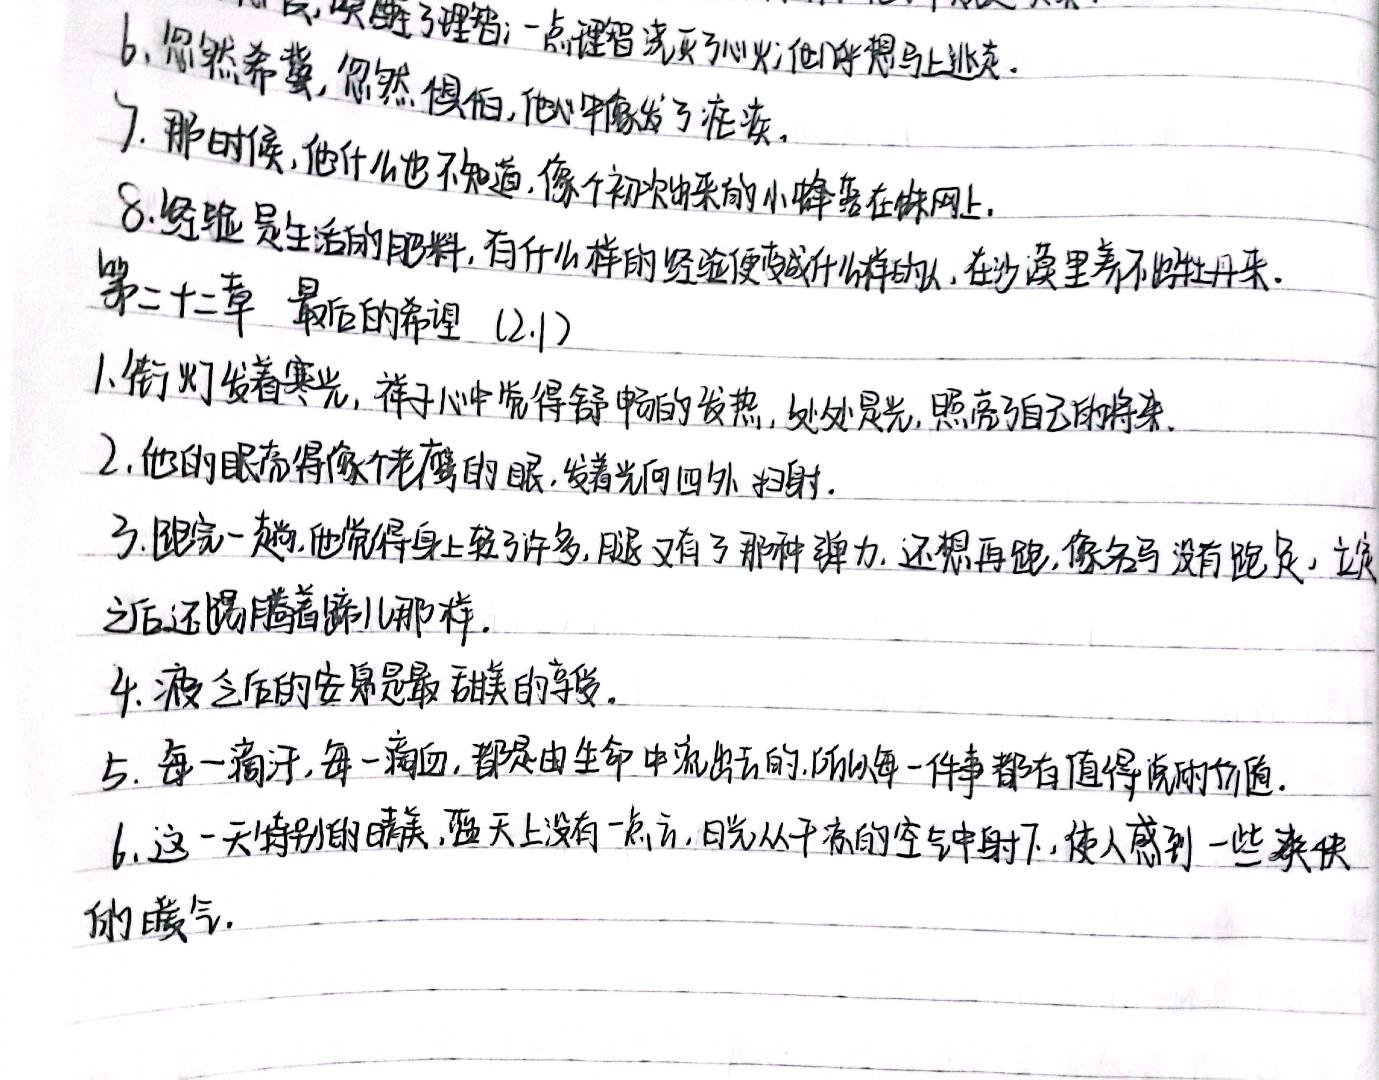 唤醒了理智；一点理智浇灭了心火；他几乎想马上逃走.
6. 忽然希望, 忽然惧怕, 他心中像发了疟疾.
7. 那时候, 他什么也不知道, 像个初次出来的小蜂落在蛛网上.
8. 经验是生活的肥料, 有什么样的经验便变成什么样的人, 在沙漠里养不出牡丹来.
第二十二章 最后的希望 (2.1)
1. 街灯发着寒光, 祥子心中觉得舒畅的发热, 处处是光, 照亮了自己的将来.
2. 他的眼亮得像个老鹰的眼, 发着光向四外扫射.
3. 跑完一趟, 他觉得身上轻了许多, 腿又有了那种弹力, 还想再跑, 像名马没有跑足, 立定
之后还踢腾着蹄儿那样.
4. 疲乏后的安息是最甜美的享受.
5. 每一滴汗, 每一滴血, 都是由生命中流出去的, 所以每一件事都有值得说的价值.
6. 这一天特别的晴美, 蓝天上没有一点云, 日光从干凉的空气中射下, 使人感到一些爽快
的暖气.